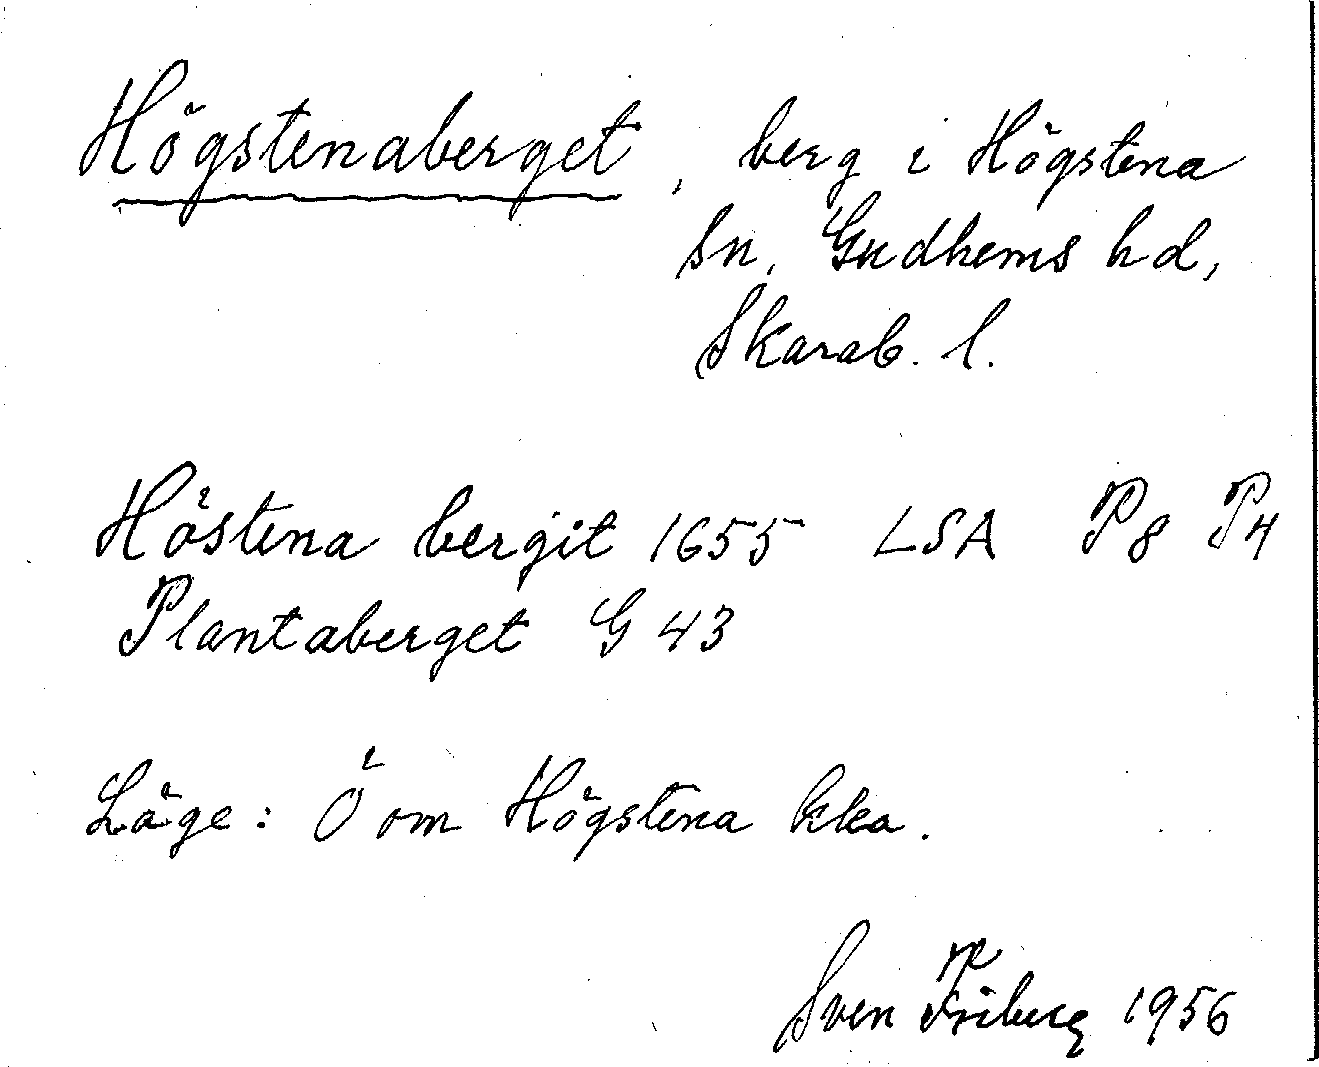 Högstenaberget, berg i Högstena
sn, Gudhems hd,
Skarab. l.
Höstena bergit 1655 LSA P8 P4
Plantaberget G 43
Läge: Ö om Högstena kka.
Sven Friberg 1956